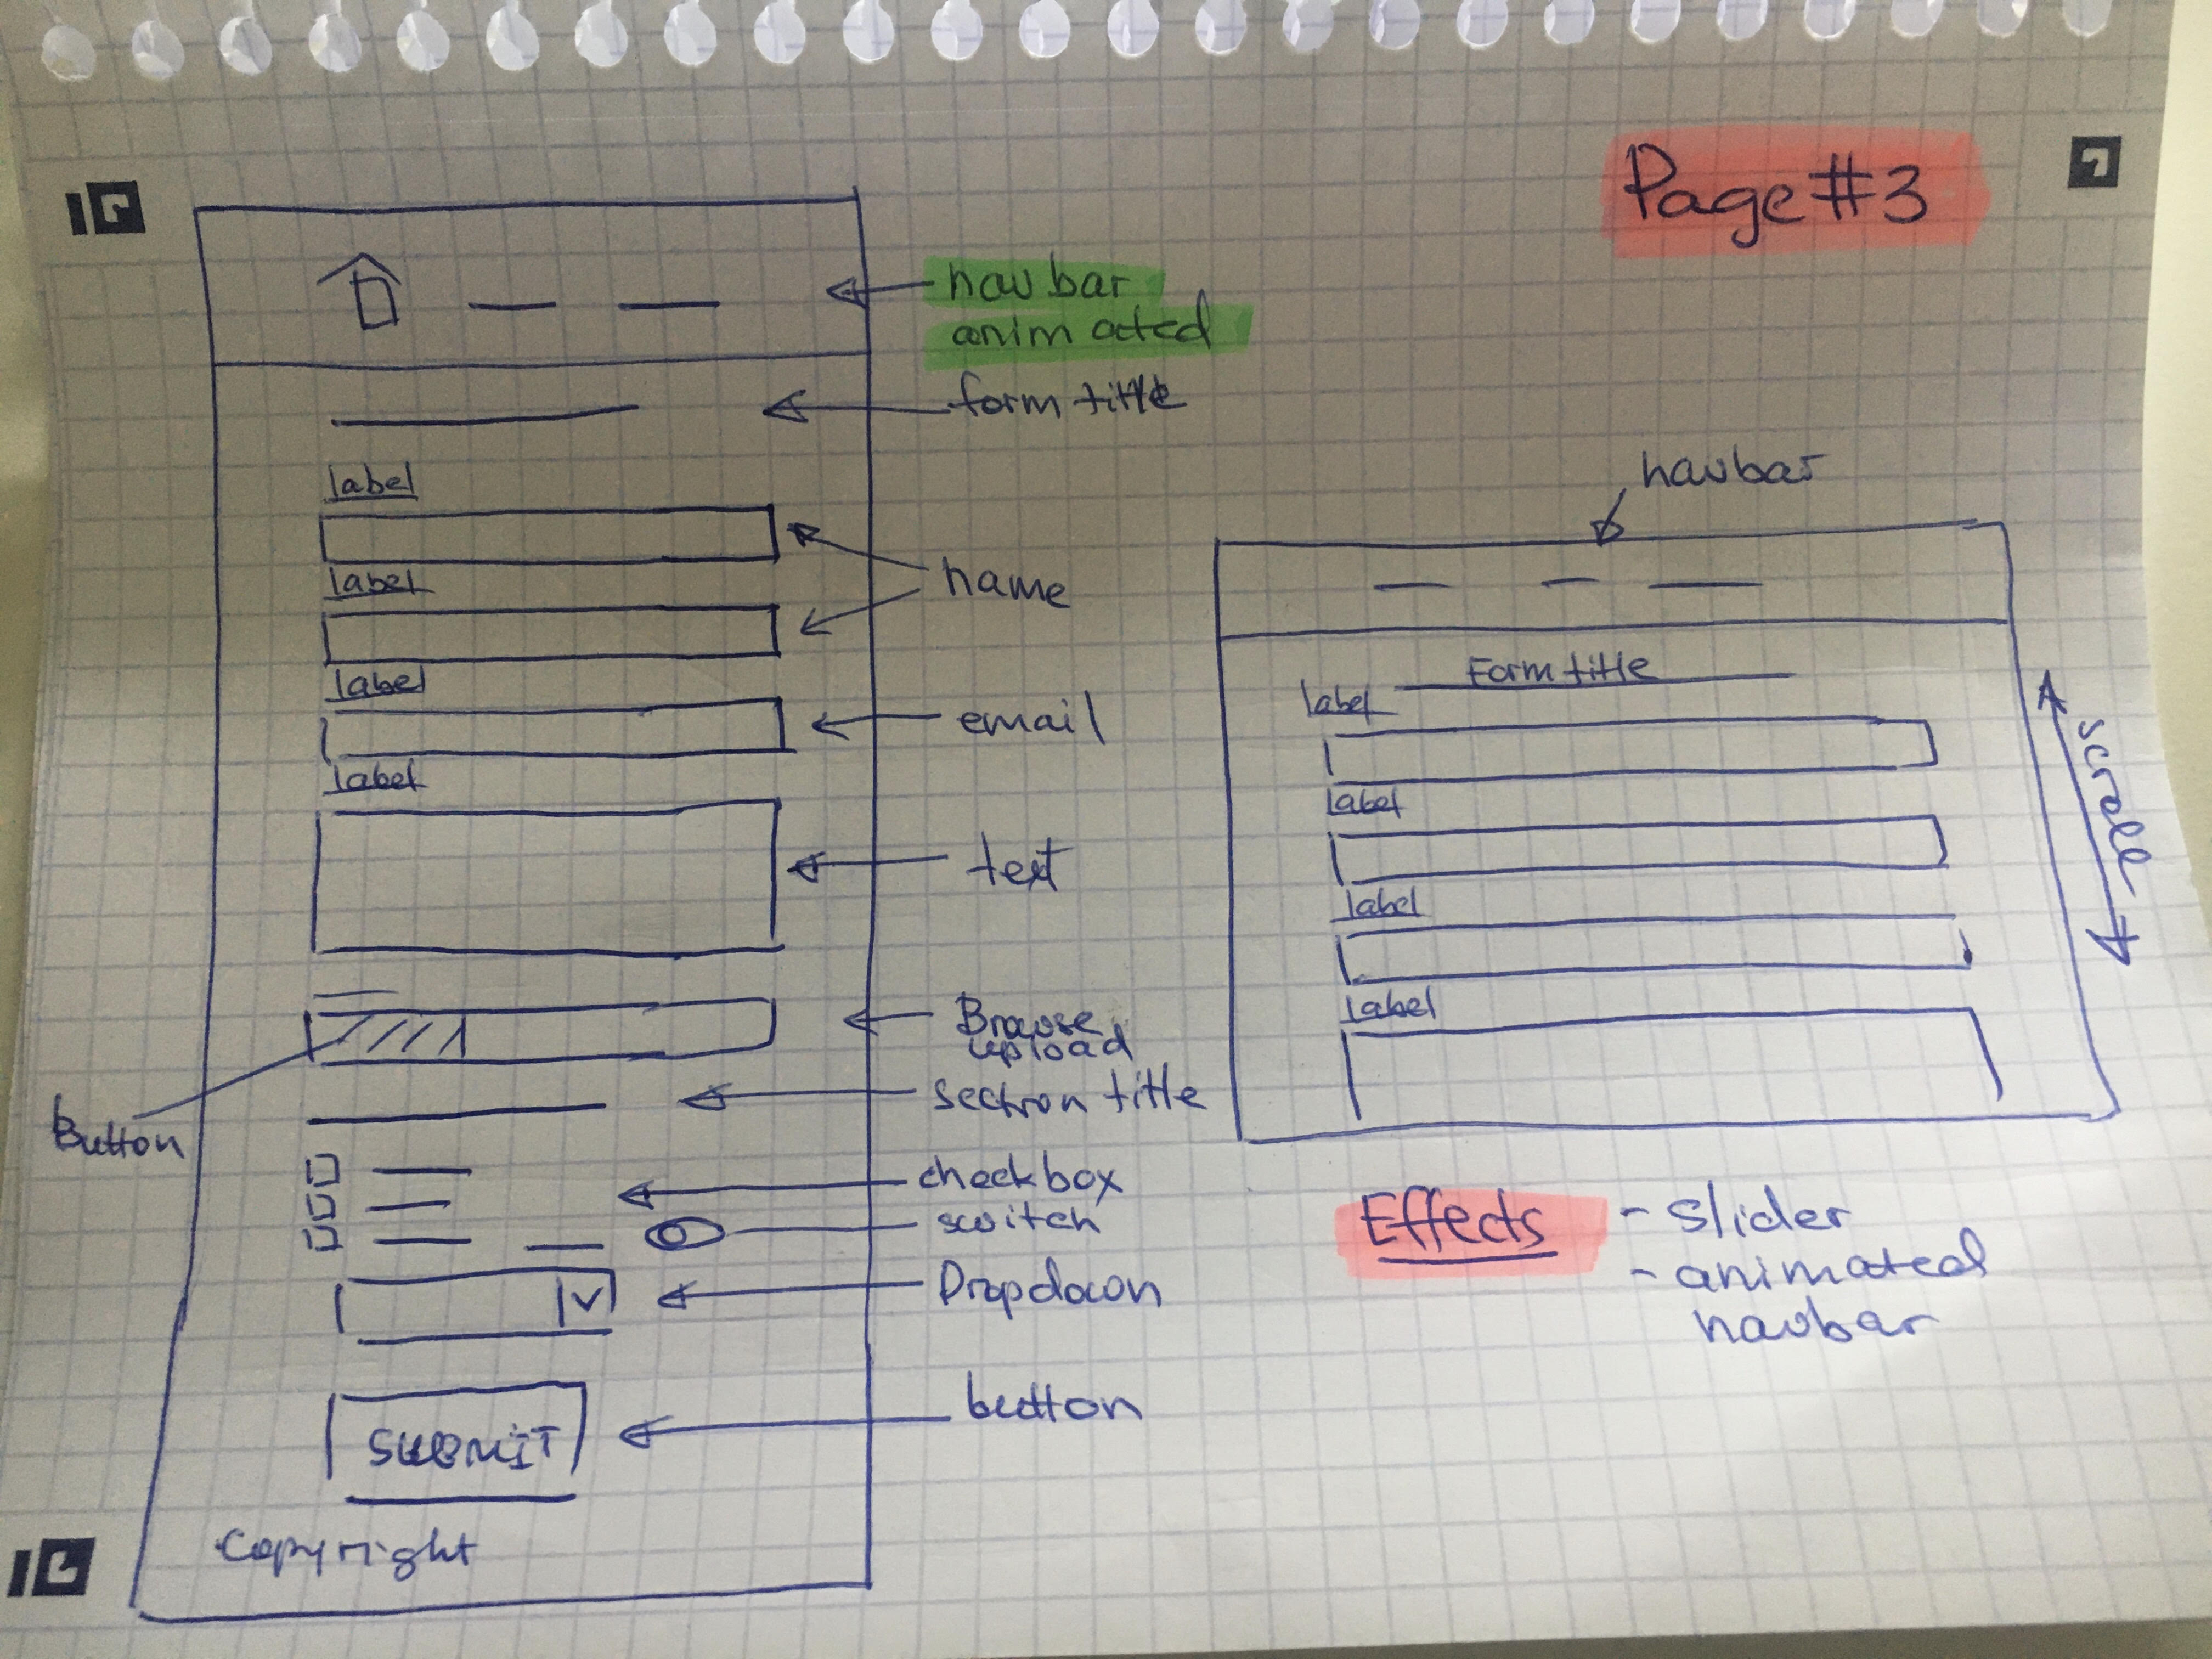 Page #3
navbar
animated
form title
label
label
name
label
email
label
text
Browse
upload
Button
section title
checkbox
switch
Dropdown
SUBMIT
button
Copyright
navbar
Form title
label
label
label
label
scroll
Effects - slider
- animated
navbar